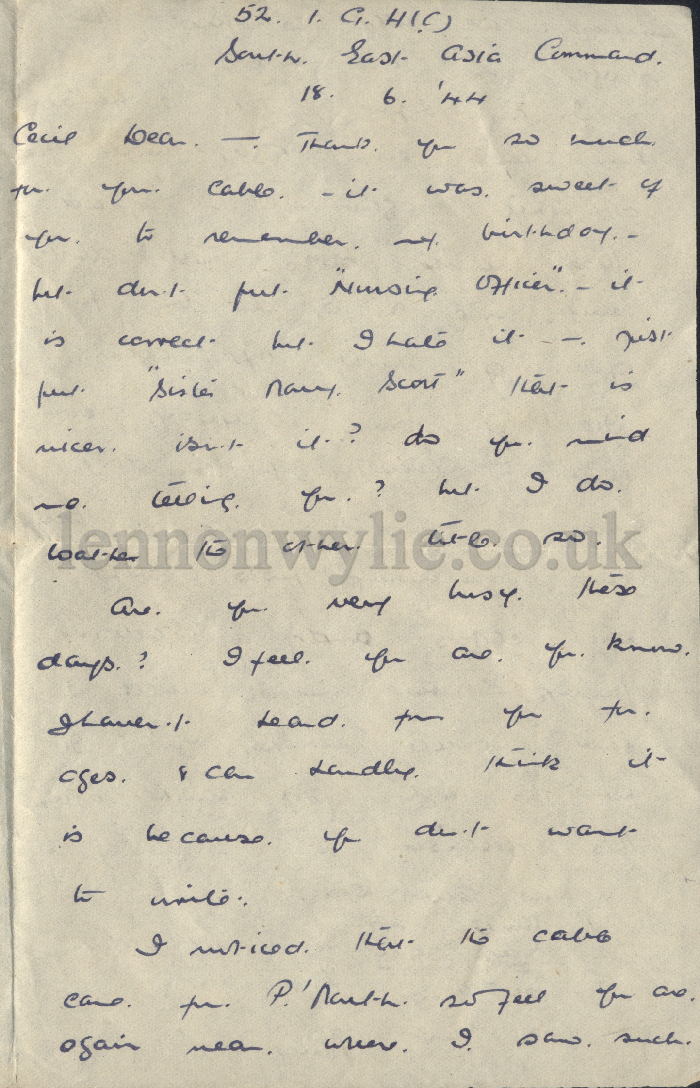 52. I. G. H(C)
South. East Asia Command.
18. 6. '44
Cecil Dear. —. Thank. you so much
for your cable. – it was. sweet of
you. to remember. my birthday. –
but don't put "Nursing Officer". – it
is correct but I hate it – —. just
put "Sister Mary. Scott" that is
nicer. isn't it? do you. mind
me. telling. you.? but I do.
loathe the other. title so.
lennonwylie.co.uk
Are. you very busy. these
days.? I feel. you are. you. know.
I haven't heard. from you for.
ages. & can hardly. think it
is because. you don't want
to write.
I noticed. that the cable
came. from. P.'Mouth. so feel you are.
again near. where. I. saw. such.